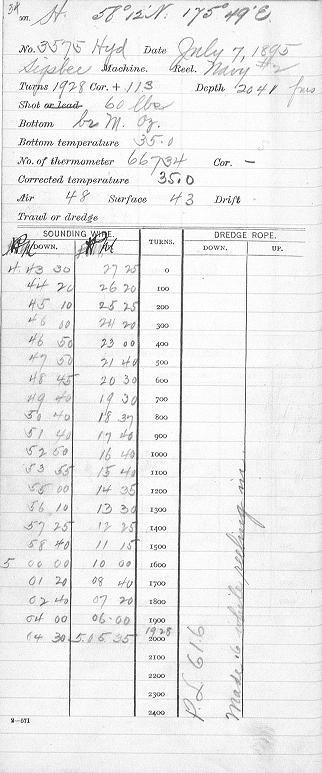 H. 58° 12' N. 175° 49' E.
No. 3575 Hyd Date July 7, 1895
Sigsbee Machine. Reel. Navy #2
Turns 1928 Cor. + 113 Depth 2041 fms
Shot or lead 60 lbs
Bottom br M. Oz.
Bottom temperature 35.0
No. of thermometer 66734 Cor. –
Corrected temperature 35.0
Air 48 Surface 43 Drift
Trawl or dredge
SOUNDING WIRE. TURNS. DREDGE ROPE.
DOWN. DOWN. UP.
4. 43 30 27 25 0
44 20 26 20 100
45 10 25 25 200
46 00 24 20 300
46 50 23 00 400
47 50 21 40 500
48 45 20 30 600
49 40 19 30 700
50 40 18 37 800
51 40 17 40 900
52 50 16 40 1000
53 55 15 40 1100
55 00 14 35 1200
56 10 13 30 1300
57 25 12 25 1400
58 40 11 15 1500
5 00 00 10 00 1600
01 20 08 40 1700
02 40 07 20 1800
04 00 06.00 1900
04 30 5.05 35 1928 2000
2100
2200
2300
2400
P.L. 6116
Made 6 while reeling in
2—571